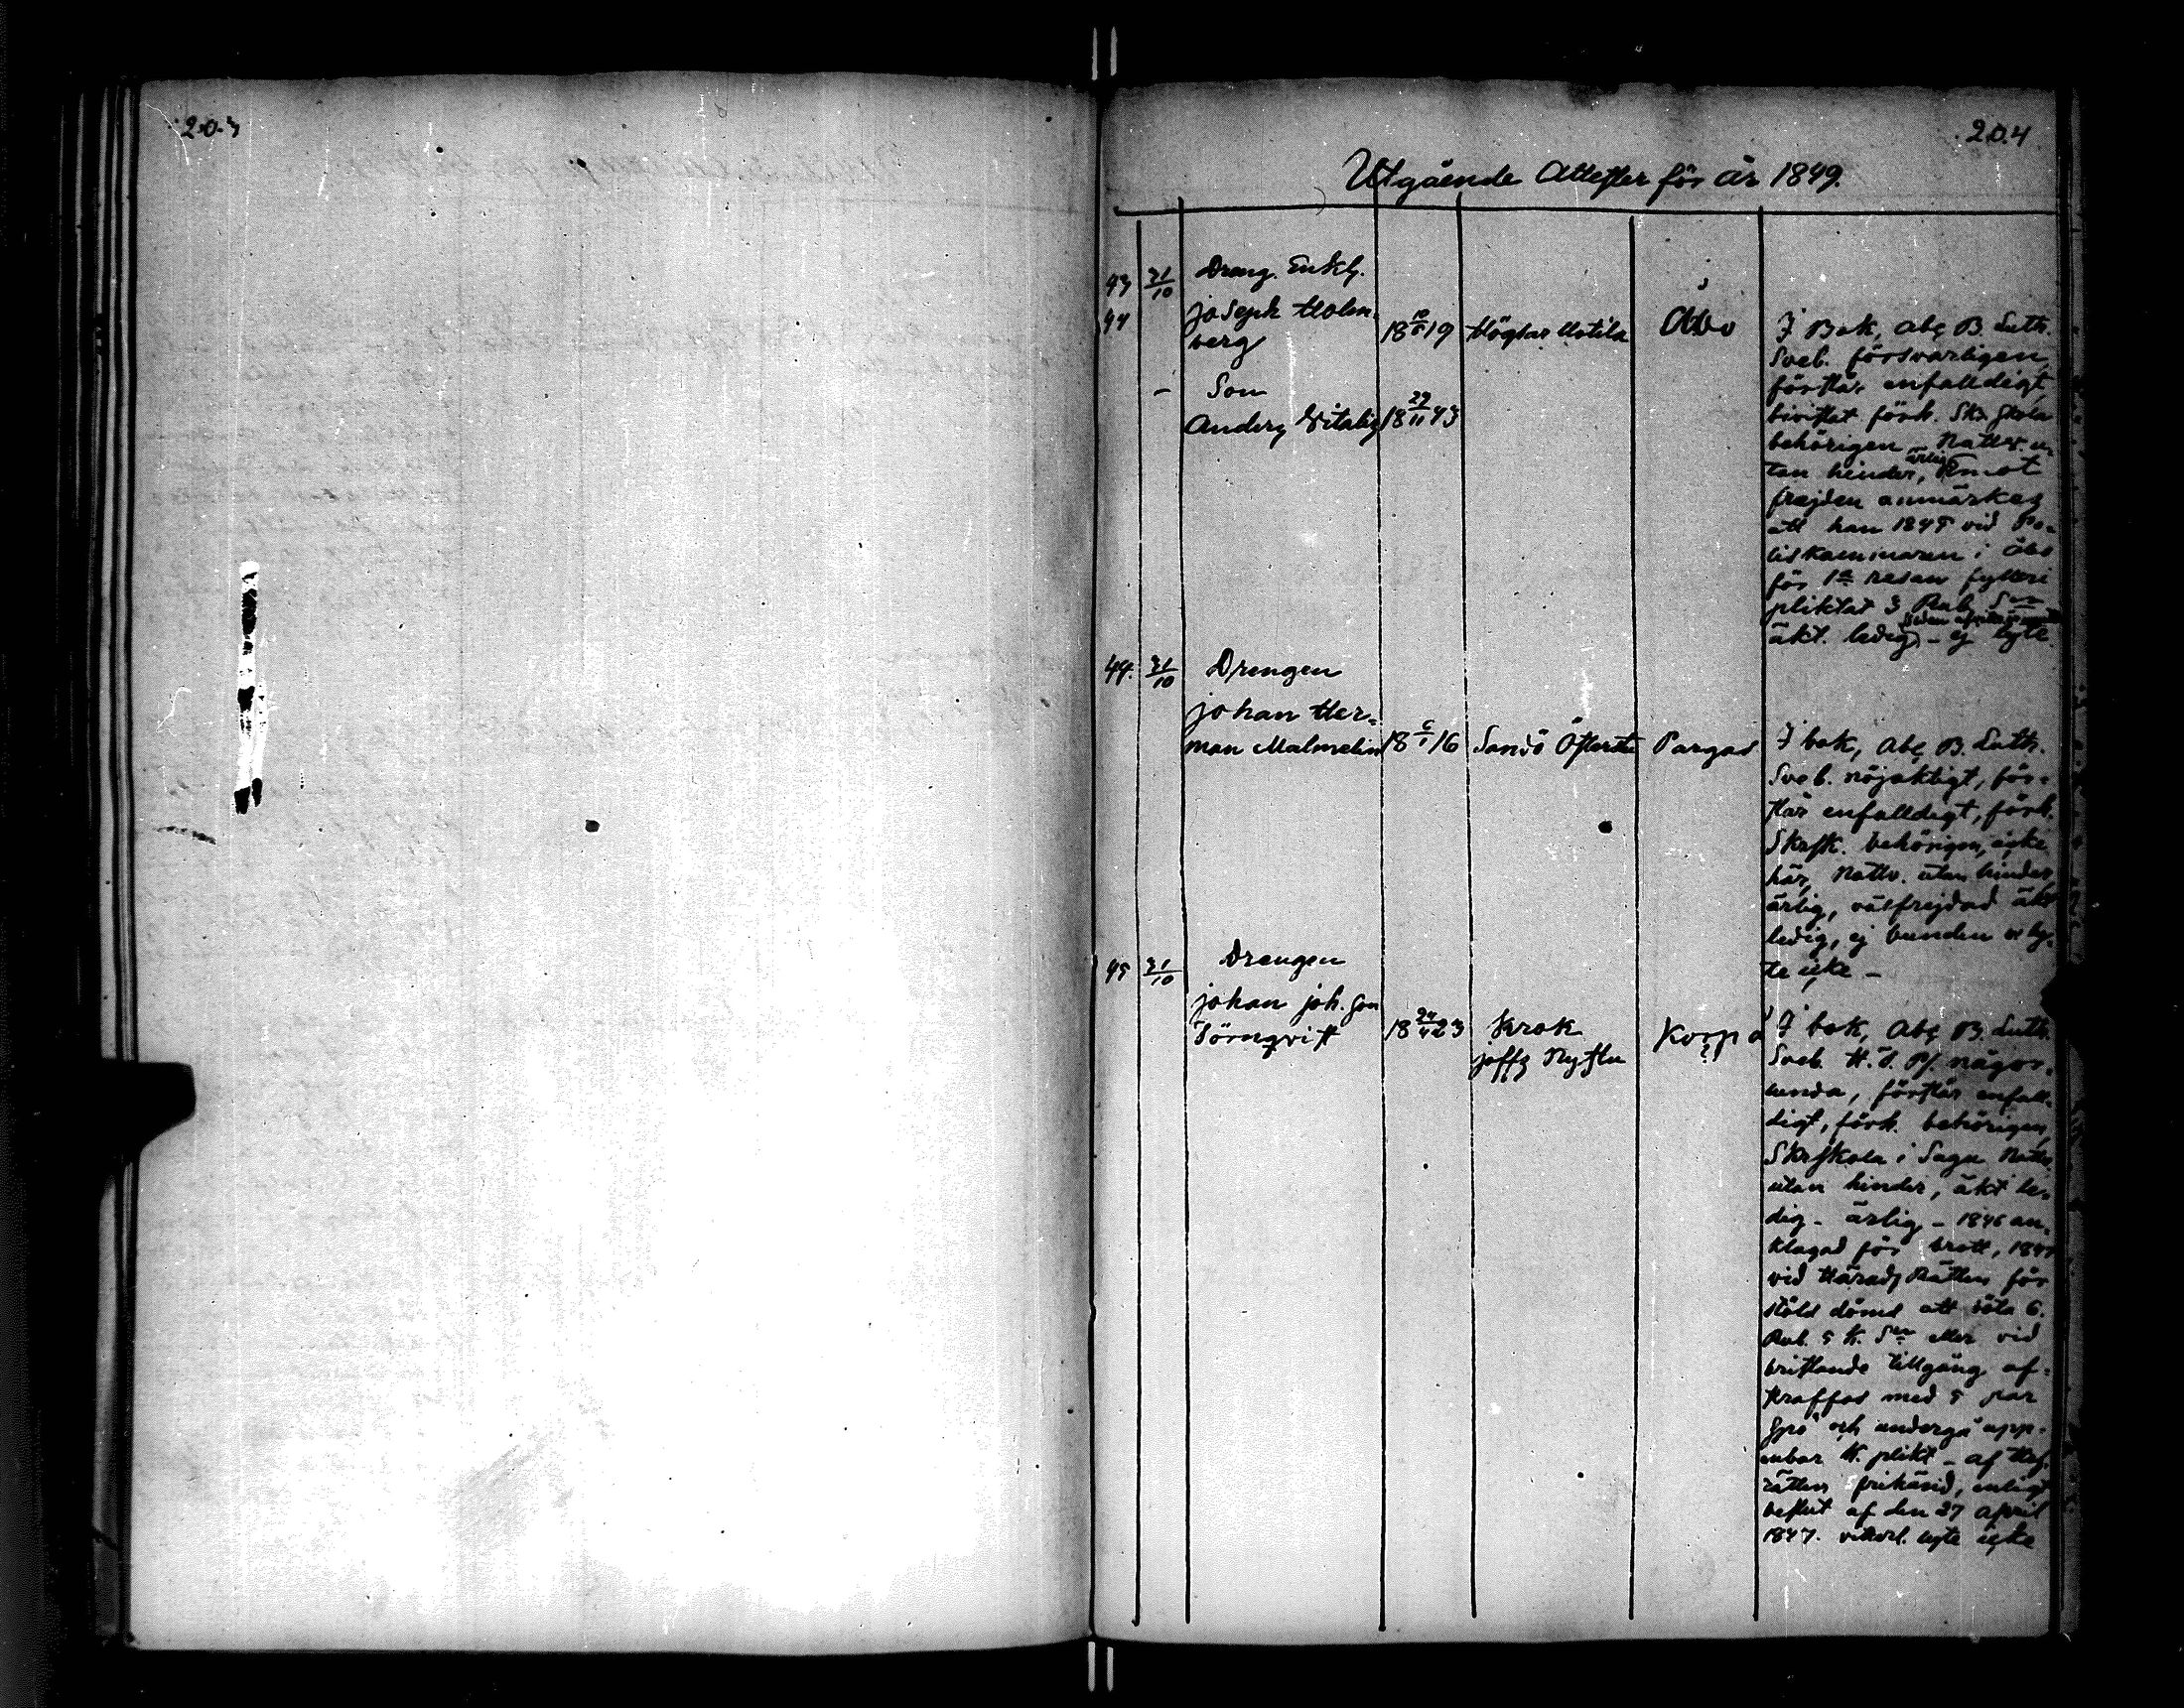 203
204
Utgående Attester för år 1849.
43 31/10 Dräng. Enkl.
44 Joseph Holm-
berg 18 10/6 19 Högsar Åbo
- Son
Anders Vitalis 18 29/11 43
I Bok, Abc B. Luth.
Sveb. försvarligen,
förstår enfalldigt,
bivistat förh. Skr. Skola
behörigen - Nattv. u-
tan hinder, ärlig Emot
frejden anmärkes
att han 1845 vid Po-
liskammaren i Åbo
för 1a resan fylleri
pliktat 3 Rub. Sr
äkt. ledig - ej lyte.
44. 31/10 Drengen
Johan Her-
man Malmelin 18 6/1 16 Sandö Pargas
I bok, Abc B. Luth.
Sveb. nöjaktigt, för-
står enfalldigt, förh.
Skrsk. behörigen, icke
här, Nattv. utan hinder,
ärlig, välfrejdad äkt
ledig, ej bunden o ly-
te icke -
45 31/10 Drengen
Johan Joh. Son
Törnqvist 18 24/4 23 Krok Korpo
Joffs
I bok, Abc B. Luth.
Sveb. H. T. Pf. någor-
lunda, förstår enfall-
digt, förh. behörigen,
Skrskola i Sagu Nattv.
utan hinder, äkt le-
dig - ärlig - 1846 an-
klagad för brott, 1847
vid Härads Rätten för
stöld dömd att böta 6.
Rub. 5 K. Sr eller vid
bristande tillgång af-
straffas med 5 par
spö och undergå uppen-
bar K. plikt - af Hof-
rätten frikänd, enligt
beslut af den 27 April
1847. lyte icke